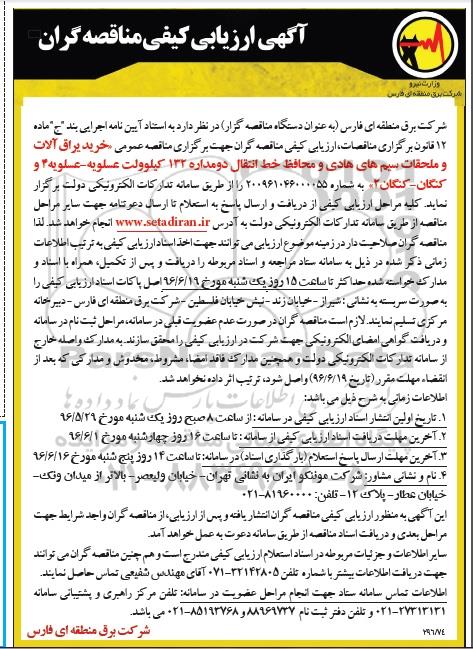 آگهی ارزیابی کیفی مناقصه گران
وزارت نیرو
شرکت برق منطقه ای فارس
شرکت برق منطقه ای فارس (به عنوان دستگاه مناقصه گزار) در نظر دارد به استناد آیین نامه اجرایی بند "ج" ماده
۱۲ قانون برگزاری مناقصات، ارزیابی کیفی مناقصه گران جهت برگزاری مناقصه عمومی «خرید یراق آلات
و ملحقات سیم های هادی و محافظ خط انتقال دومداره ۱۳۲ کیلوولت عسلویه-عسلویه۴ و
کنگان-کنگان۲» به شماره ۲۰۰۹۶۱۰۴۶۰۰۰۰۵۵ را از طریق سامانه تدارکات الکترونیکی دولت برگزار
نماید. کلیه مراحل ارزیابی کیفی از دریافت و ارسال پاسخ به استعلام تا ارسال دعوتنامه جهت سایر مراحل
مناقصه از طریق سامانه تدارکات الکترونیکی دولت به آدرس www.setadiran.ir انجام خواهد شد. لذا
مناقصه گران صلاحیت دار در زمینه موضوع ارزیابی می توانند جهت اخذ اسناد ارزیابی کیفی به ترتیب اطلاعات
زمانی ذکر شده در ذیل به سامانه ستاد مراجعه و اسناد مربوطه را دریافت و پس از تکمیل، همراه با اسناد و
مدارک خواسته شده حداکثر تا ساعت ۱۵ روز یک شنبه مورخ ۹۶/۶/۱۹ اصل پاکات اسناد ارزیابی کیفی را
به صورت سربسته به نشانی: شیراز-خیابان زند-نبش خیابان فلسطین-شرکت برق منطقه ای فارس-دبیرخانه
مرکزی تسلیم نمایند. لازم است مناقصه گران در صورت عدم عضویت قبلی در سامانه، مراحل ثبت نام در سامانه
و دریافت گواهی امضای الکترونیکی جهت شرکت در ارزیابی کیفی را محقق سازند. به مدارک واصله خارج
از سامانه تدارکات الکترونیکی دولت و همچنین مدارک فاقد امضاء، مشروط، مخدوش و مدارکی که بعد از
انقضاء مهلت مقرر (تاریخ ۹۶/۶/۱۹) واصل شود، ترتیب اثر داده نخواهد شد.
اطلاعات زمانی به شرح ذیل می باشد:
۱. تاریخ اولین انتشار اسناد ارزیابی کیفی در سامانه: از ساعت ۸ صبح روز یک شنبه مورخ ۹۶/۵/۲۹
۲. آخرین مهلت دریافت اسناد ارزیابی کیفی از سامانه: تا ساعت ۱۶ روز چهارشنبه مورخ ۹۶/۶/۱
۳. آخرین مهلت ارسال پاسخ استعلام (بارگذاری اسناد) در سامانه: تا ساعت ۱۴ روز پنج شنبه مورخ ۹۶/۶/۱۶
۴. نام و نشانی مشاور: شرکت موننکو ایران به نشانی تهران- خیابان ولیعصر- بالاتر از میدان ونک-
خیابان عطار- پلاک ۱۲- تلفن: ۸۱۹۶۰۰۰۰-۰۲۱
این آگهی به منظور ارزیابی کیفی مناقصه گران انتشار یافته و پس از ارزیابی، از مناقصه گران واجد شرایط جهت
مراحل بعدی و دریافت اسناد مناقصه از طریق سامانه دعوت به عمل خواهد آمد.
سایر اطلاعات و جزئیات مربوطه در اسناد استعلام ارزیابی کیفی مندرج است و هم چنین مناقصه گران می توانند
جهت دریافت اطلاعات بیشتر با شماره تلفن ۳۲۱۴۲۸۰۵-۰۷۱ آقای مهندس شفیعی تماس حاصل نمایند.
اطلاعات تماس سامانه ستاد جهت انجام مراحل عضویت در سامانه: تلفن مرکز راهبری و پشتیبانی سامانه
۲۷۳۱۳۱۳۱-۰۲۱ و تلفن دفتر ثبت نام ۸۸۹۶۹۷۳۷ و ۸۵۱۹۳۷۶۸-۰۲۱ می باشد.
۲۹۶/۷۴
شرکت برق منطقه ای فارس